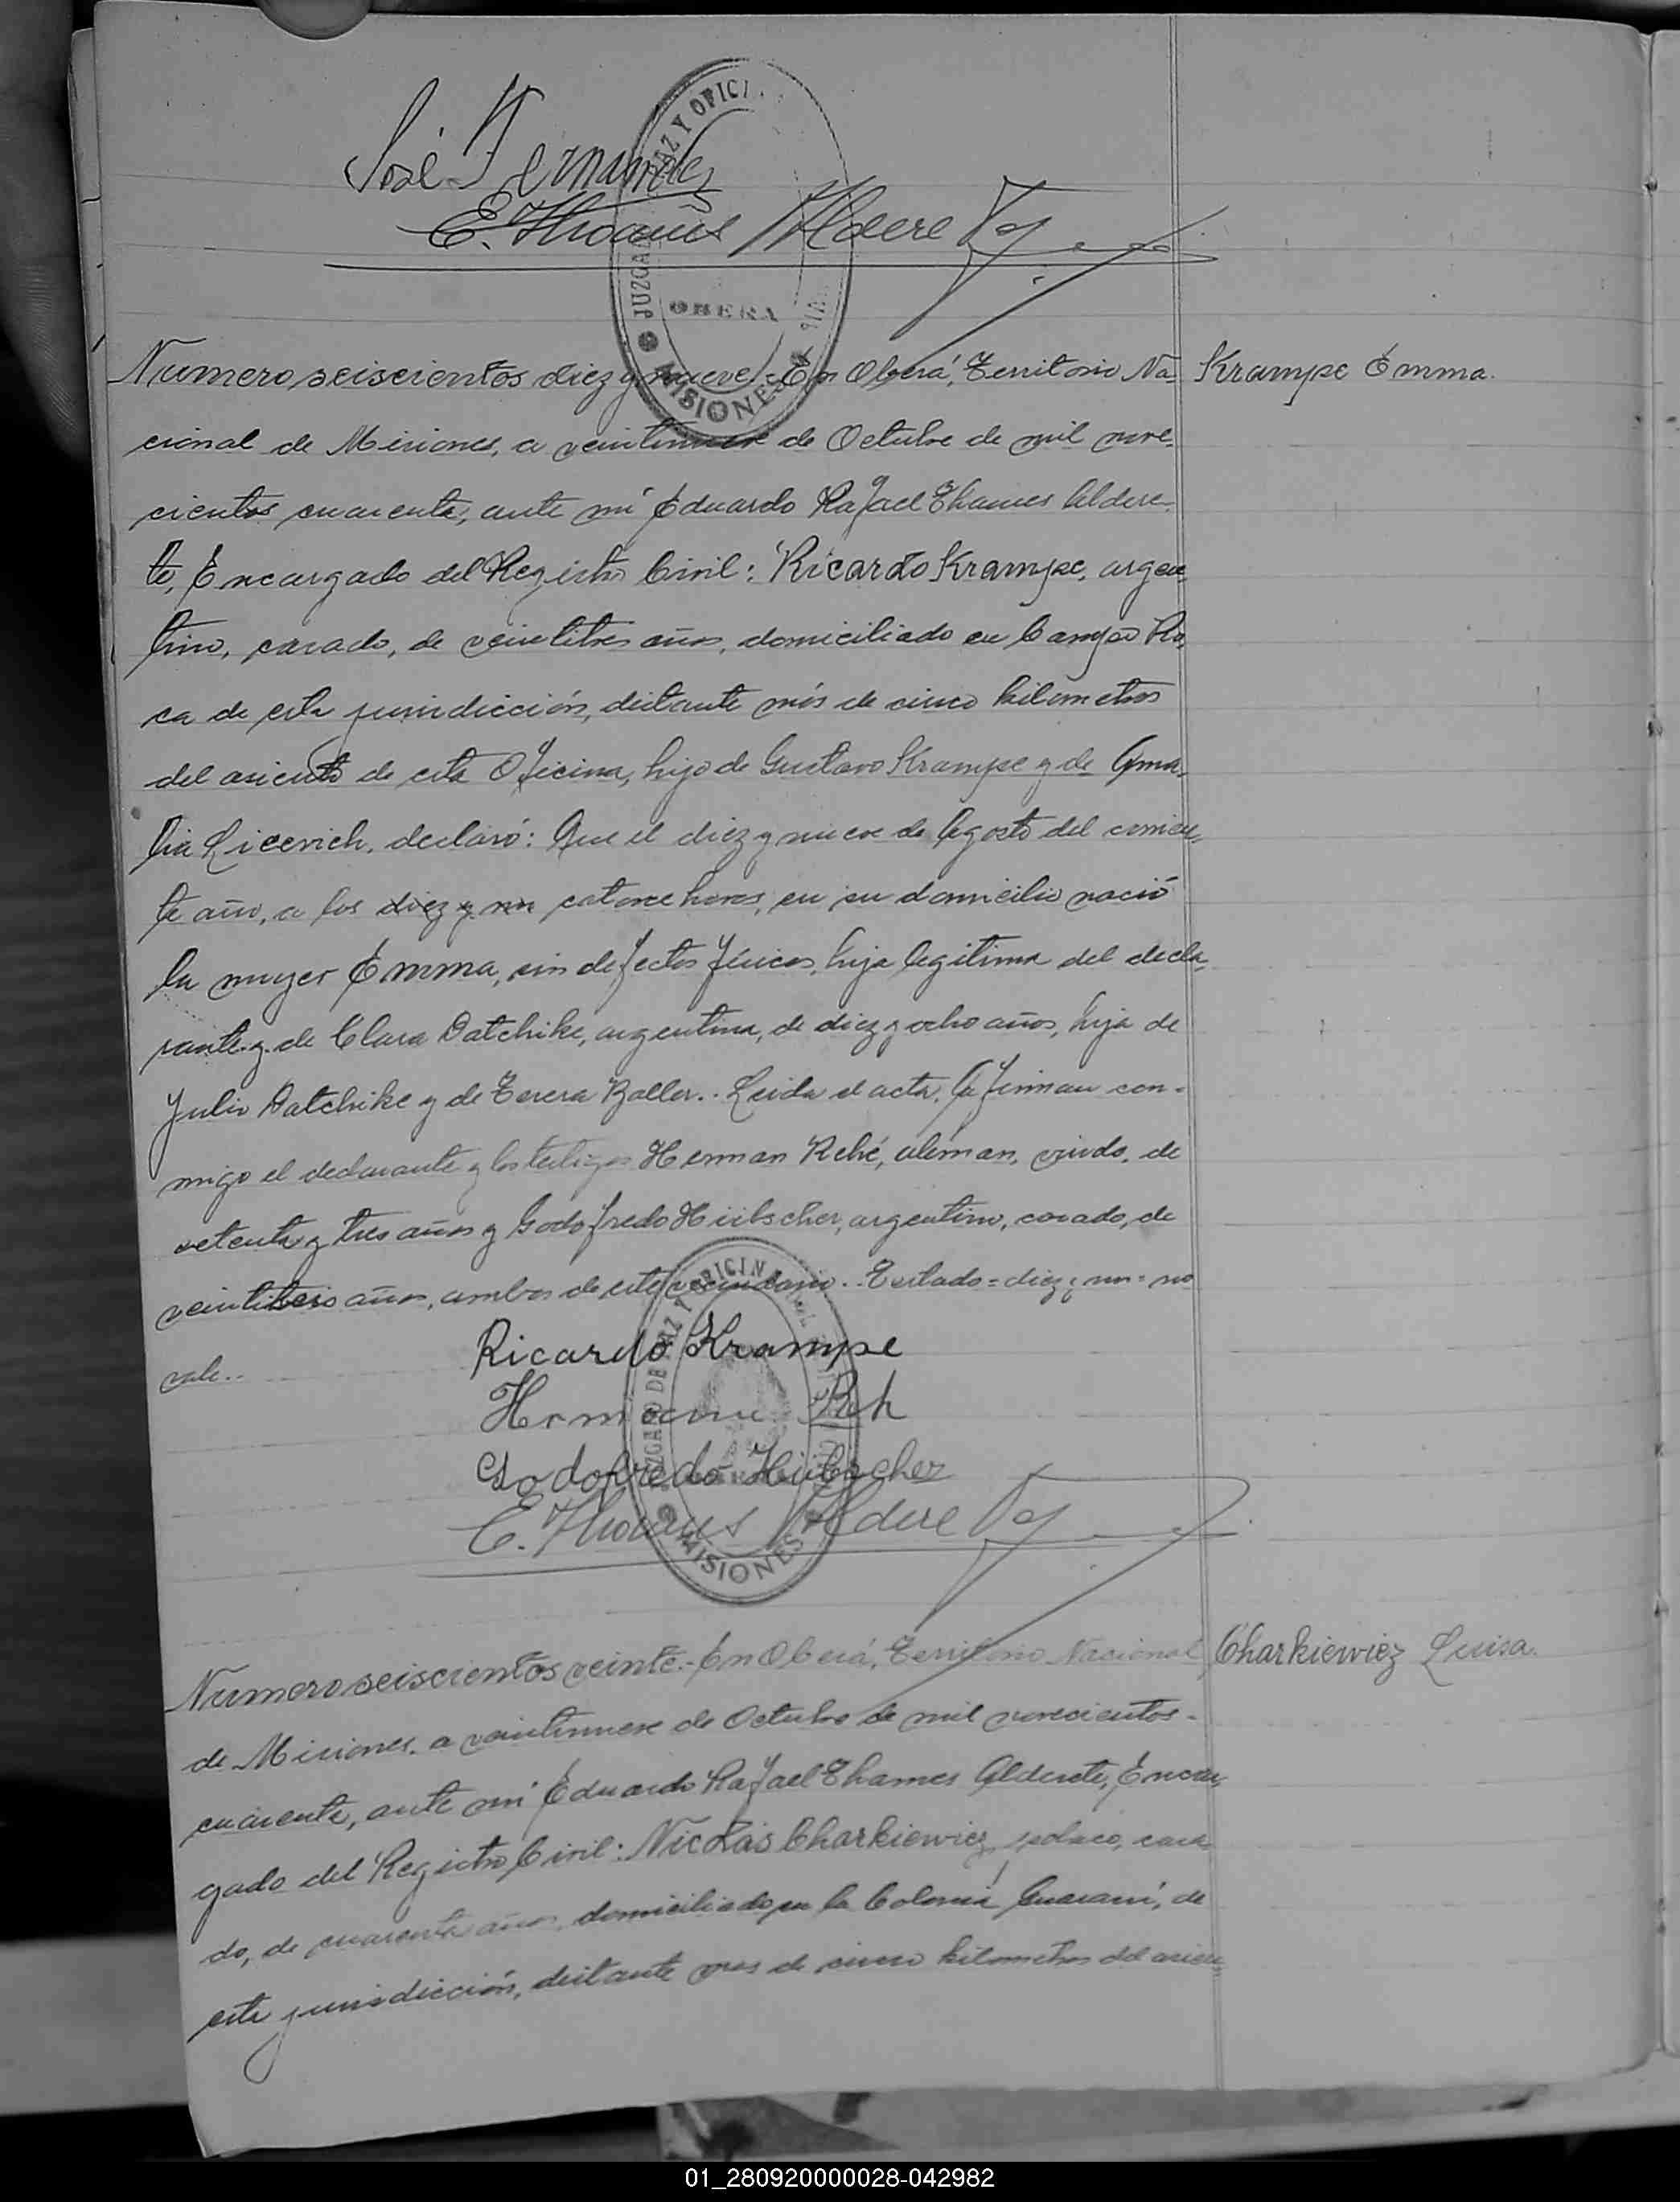 José Fernandez
E. Thames Alderete
JUZGADO DE PAZ Y OFICI
OBERA
MISIONES
Numero seiscientos diez y nueve.- En Oberá, Territorio Na- Krampe Emma.
cional de Misiones, a veintinueve de Octubre de mil nove-
cientos cuarenta, ante mí Eduardo Rafael Thames Aldere-
te, Encargado del Registro Civil: Ricardo Krampe, argen-
tino, casado, de veintitres años, domiciliado en Campo Ro-
ca de esta jurisdicción, distante más de cinco kilometros
del asiento de esta Oficina, hijo de Gustavo Krampe y de Ama-
lia Licevich, declaró: Que el diez y nueve de Agosto del corrien-
te año, a las diez y nu catorce horas, en su domicilio nació
la mujer Emma, sin defectos físicos, hija legitima del decla-
rante y de Clara Datchike, argentina, de diez y ocho años, hija de
Julio Datchike y de Teresa Zoller.. Leida el acta, la firman con-
migo el declarante y los testigos Herman Rehé, alemán, viudo, de
setenta y tres años y Godofredo Hübscher, argentino, casado, de
años, ambos de este vecindario.- Testado=diez y nu=no
vale..
Ricardo Krampe
Hermann Reh
Godofredo Hübscher
E. Thames Alderete
MISIONES
Numero seiscientos veinte.- En Oberá, Territorio Nacional Charkiewiez Luisa.
de Misiones, a veintinueve de Octubre de mil novecientos-
cuarenta, ante mí Eduardo Rafael Thames Alderete, Encar-
gado del Registro Civil: Nicolás Charkiewiez, polaco, casa-
do, de cuarenta años, domiciliado en la Colonia Guaraní, de
esta jurisdicción, distante mas de cinco kilometros del asien-
01_280920000028-042982